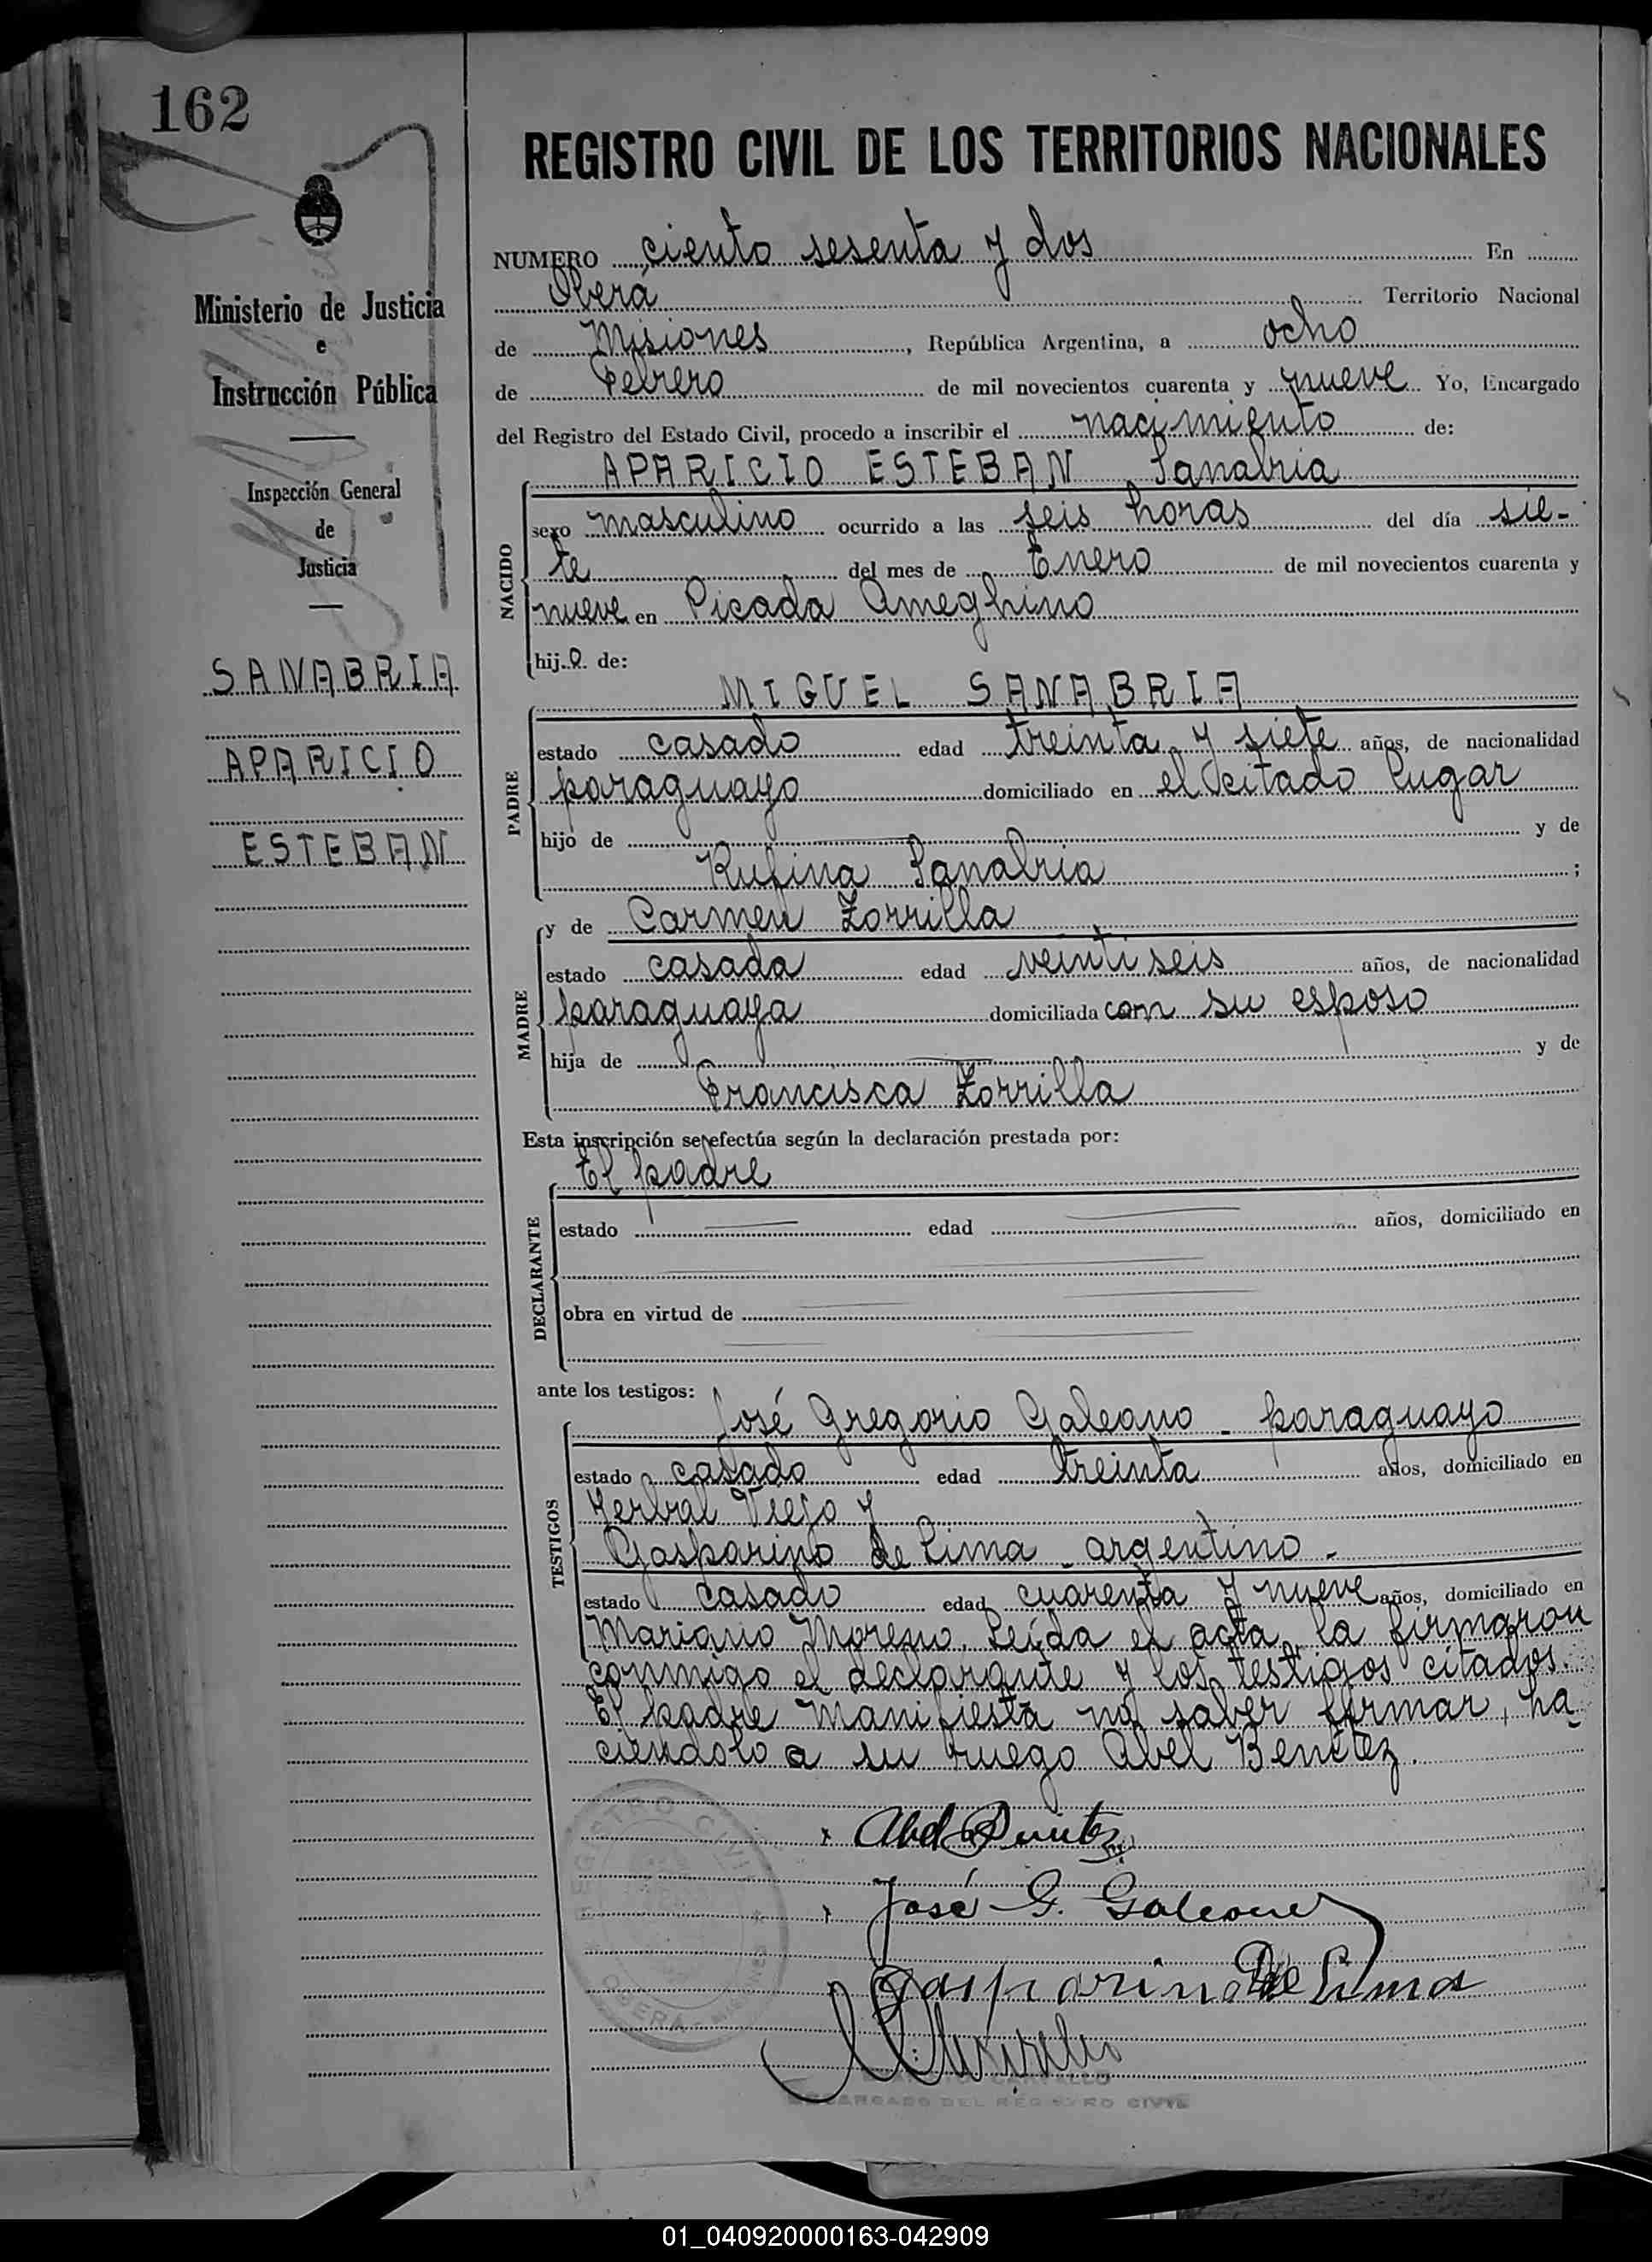 162
REGISTRO CIVIL DE LOS TERRITORIOS NACIONALES
Ministerio de Justicia
e
Instrucción Pública
Inspección General
de
Justicia
SANABRIA
APARICIO
ESTEBAN
NUMERO ciento sesenta y dos En
Oberá Territorio Nacional
de Misiones, República Argentina, a ocho
de Febrero de mil novecientos cuarenta y nueve Yo, Encargado
del Registro del Estado Civil, procedo a inscribir el nacimiento de:
APARICIO ESTEBAN Sanabria
NACIDO
sexo masculino ocurrido a las seis horas del día sie-
te del mes de Enero de mil novecientos cuarenta y
nueve en Picada Ameghino
hijo de:
MIGUEL SANABRIA
PADRE
estado casado edad treinta y siete años, de nacionalidad
paraguayo domiciliado en el citado lugar
hijo de y de
Rufina Sanabria ;
y de Carmen Zorrilla
MADRE
estado casada edad veintiseis años, de nacionalidad
paraguaya domiciliada con su esposo
hija de y de
Francisca Zorrilla
Esta inscripción se efectúa según la declaración prestada por:
El padre
DECLARANTE
estado edad años, domiciliado en
obra en virtud de
ante los testigos:
José Gregorio Galeano - paraguayo
TESTIGOS
estado casado edad treinta años, domiciliado en
Yerbal Viejo y
Gasparino de Lima - argentino -
estado casado edad cuarenta y nueve años, domiciliado en
Mariano Moreno. Leída el acta, la firmaron
conmigo el declarante y los testigos citados.
El padre manifiesta no saber firmar, ha-
ciendolo a su ruego Abel Benitez.
Abel Benitez
José G. Galeano
Gasparino De Lima
REGISTRO CIVIL
OBERA
CARVALLO
ENCARGADO DEL REGISTRO CIVIL
01_040920000163-042909